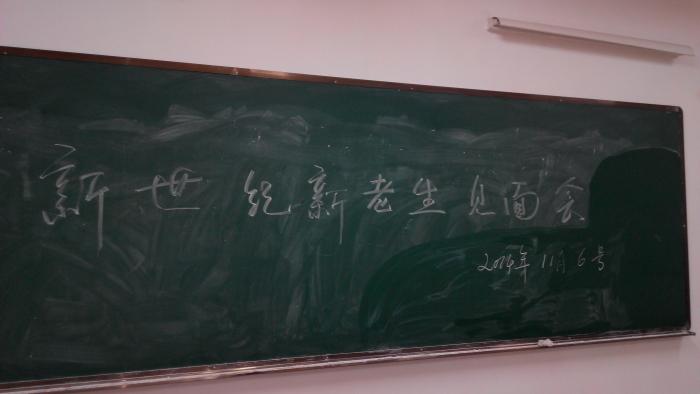 新世纪新老生见面会
2014年11月6号